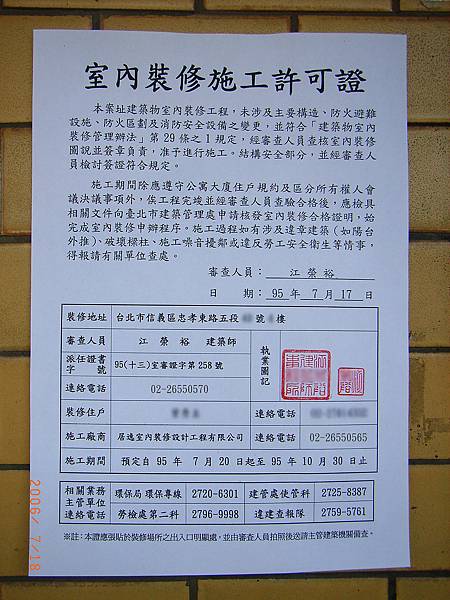 室內裝修施工許可證
本案址建築物室內裝修工程，未涉及主要構造、防火避難
設施、防火區劃及消防安全設備之變更，並符合「建築物室內
裝修管理辦法」第29條之1規定，經審查人員查核室內裝修
圖說並簽章負責，准予進行施工。結構安全部分，並經審查人
員檢討簽證符合規定。
施工期間除應遵守公寓大廈住戶規約及區分所有權人會
議決議事項外，俟工程完竣並經審查人員查驗合格後，應檢具
相關文件向臺北市建築管理處申請核發室內裝修合格證明，始
完成室內裝修申辦程序。施工過程如有涉及違章建築（如陽台
外推）、破壞樑柱、施工噪音擾鄰或違反勞工安全衛生等情事，
得報請有關單位查處。
審查人員： 江 榮 裕
日 期： 95 年 7 月 17 日
裝修地址 台北市信義區忠孝東路五段 號 樓
審查人員 江 榮 裕 建築師
派任證書字號 95(十三)室審證字第258號
連絡電話 02-26550570
執業圖記
裝修住戶 連絡電話
施工廠商 居逸室內裝修設計工程有限公司 連絡電話 02-26550565
施工期間 預定自 95 年 7 月 20 日起至 95 年 10 月 30 日止
相關業務主管單位連絡電話
環保局環保專線 2720-6301 建管處使管科 2725-8387
勞檢處第二科 2796-9998 違建查報隊 2759-5761
※註：本證應張貼於裝修場所之出入口明顯處，並由審查人員拍照後送請主管建築機關備查。
2006/ 7/18